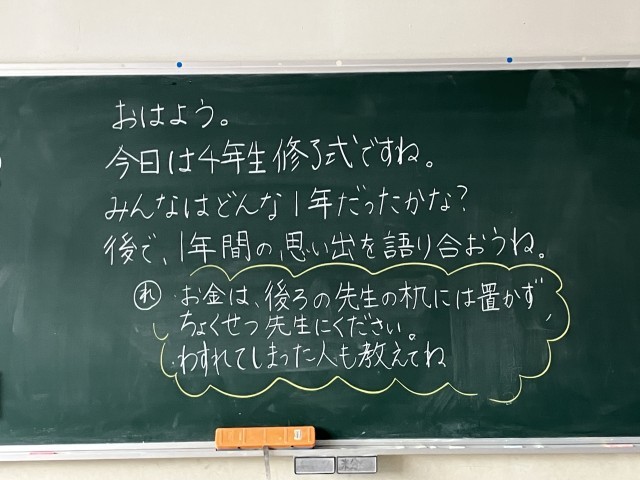 おはよう。
今日は4年生修了式ですね。
みんなはどんな1年だったかな?
後で、1年間の思い出を語り合おうね。
れ お金は、後ろの先生の机には置かず
ちょくせつ先生にください。
わすれてしまった人も教えてね